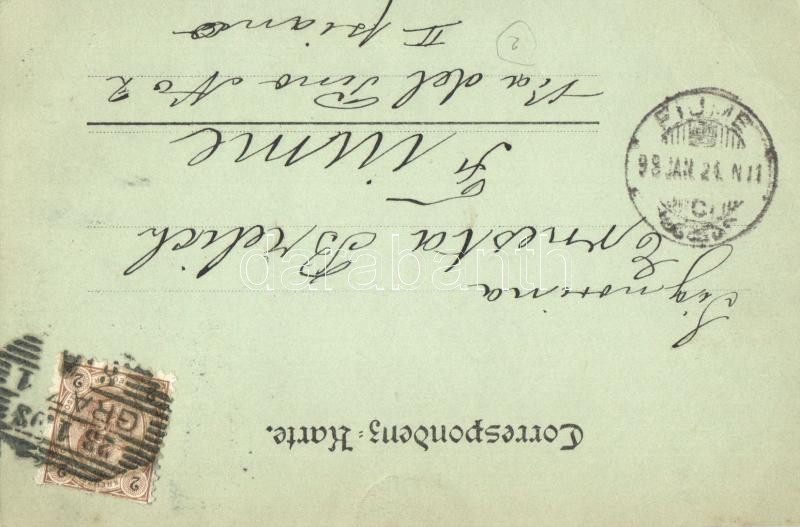 Correspondenz-Karte.
Signorina
Ernesta Brelich
Fiume
Via del Pino No 2
II piano
2
FIUME
98 JAN. 24. N 11
GRAZ
23
1
98
2
2
2
darabanth